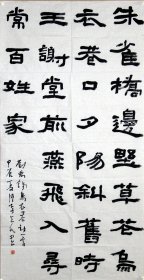 朱雀橋邊野草花烏
衣巷口夕陽斜舊時
王謝堂前燕飛入尋
常百姓家
劉禹錫烏衣巷
甲辰